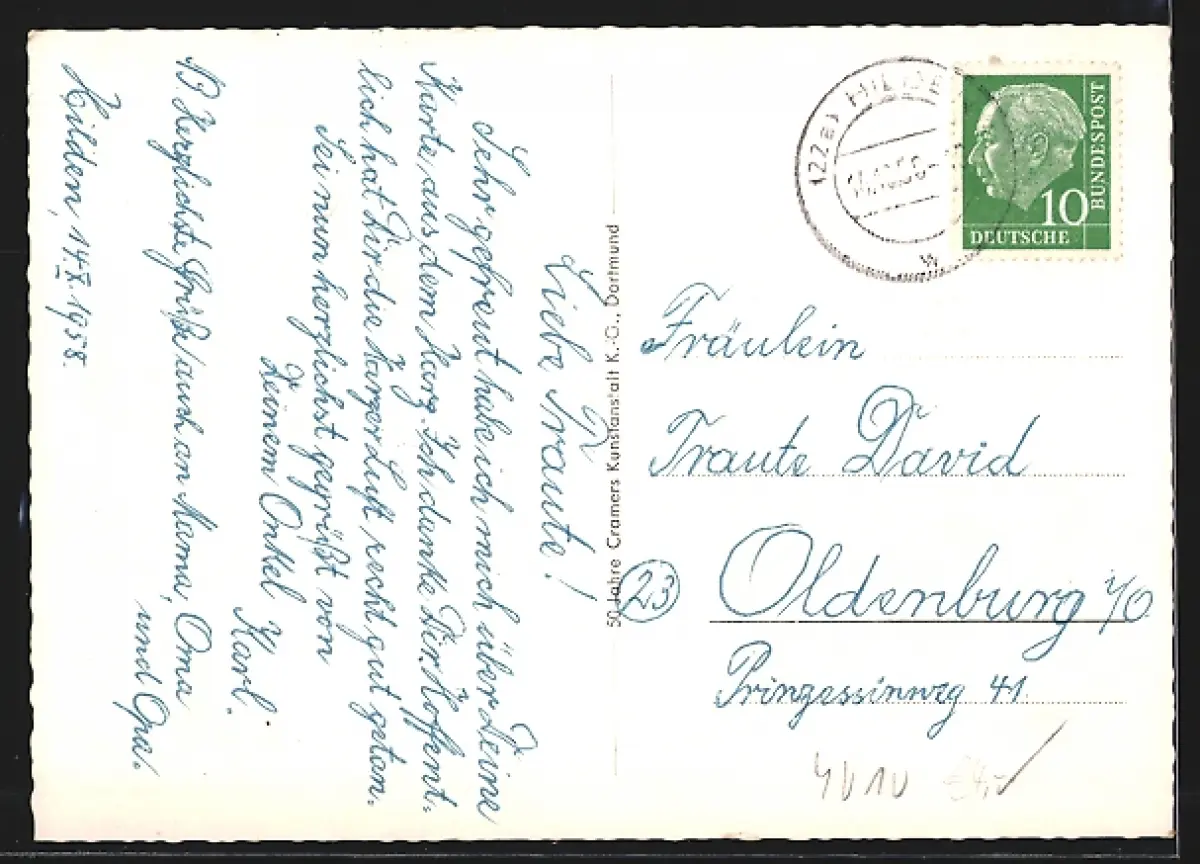 Hilden, 14.X.1958.
Liebe Traute!
Sehr gefreut habe ich mich über Deine
Karte, aus dem Harz. Ich danke Dir. Hoffent-
lich hat Dir die Harzer Luft recht gut getan.
Sei nun herzlichst gegrüßt von
Deinem Onkel
Karl.
Herzlichste Grüße auch an Mama, Oma
und Opa.
50 Jahre Cramers Kunstanstalt K.-G., Dortmund
(22a) HILDEN
10
DEUTSCHE
BUNDESPOST
Fräulein
Traute David
23
Oldenburg i/O
Prinzessinweg 41.
4010